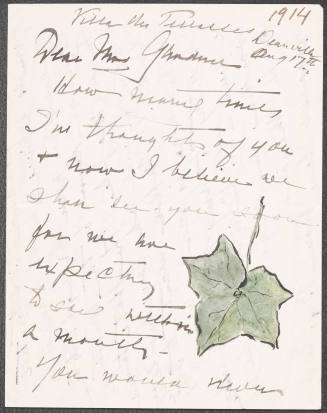 1914
Villa des Terrasses
Deauville
Aug 17th
Dear Mrs Gardner
How many times
I've thought of you
+ now I believe we
shall see you soon
for we are
expecting
to sail within
a month.
You would never